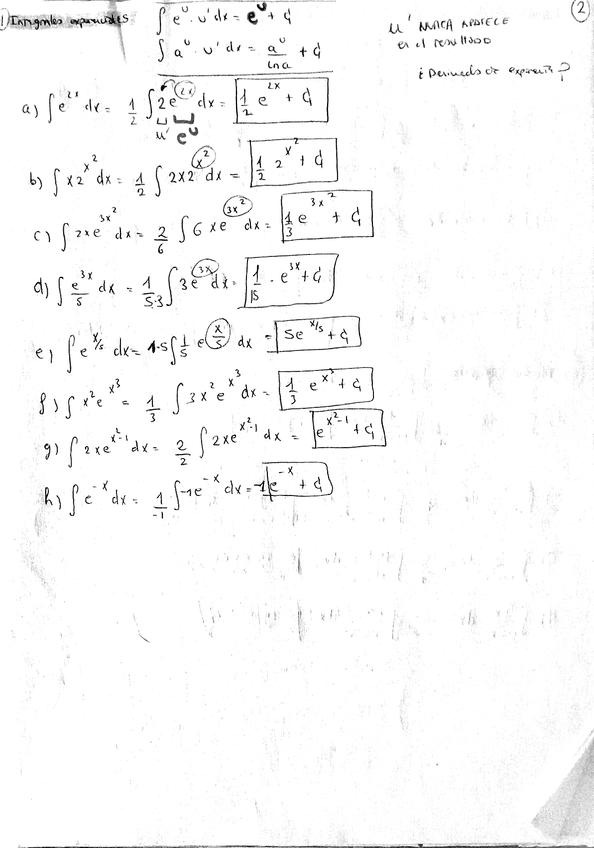 1) Integrales exponenciales ∫ e^u · u' dx = e^u + C
∫ a^u · u' dx = a^u / ln a + C
u' NUNCA APARECE
en el resultado
2
¿Derivada de exponente?
a) ∫ e^{2x} dx = 1/2 ∫ 2e^{2x} dx = 1/2 e^{2x} + C
u' e^u
b) ∫ x2^{x^2} dx = 1/2 ∫ 2x2^{x^2} dx = 1/2 2^{x^2} + C
c) ∫ 2xe^{3x^2} dx = 2/6 ∫ 6xe^{3x^2} dx = 1/3 e^{3x^2} + C
d) ∫ e^{3x}/5 dx = 1/5·3 ∫ 3e^{3x} dx = 1/15 · e^{3x} + C
e) ∫ e^{x/5} dx = 1·5 ∫ 1/5 e^{x/5} dx = 5e^{x/5} + C
f) ∫ x^2 e^{x^3} = 1/3 ∫ 3x^2 e^{x^3} dx = 1/3 e^{x^3} + C
g) ∫ 2xe^{x^2-1} dx = 2/2 ∫ 2xe^{x^2-1} dx = e^{x^2-1} + C
h) ∫ e^{-x} dx = 1/-1 ∫ -1e^{-x} dx = -1 e^{-x} + C